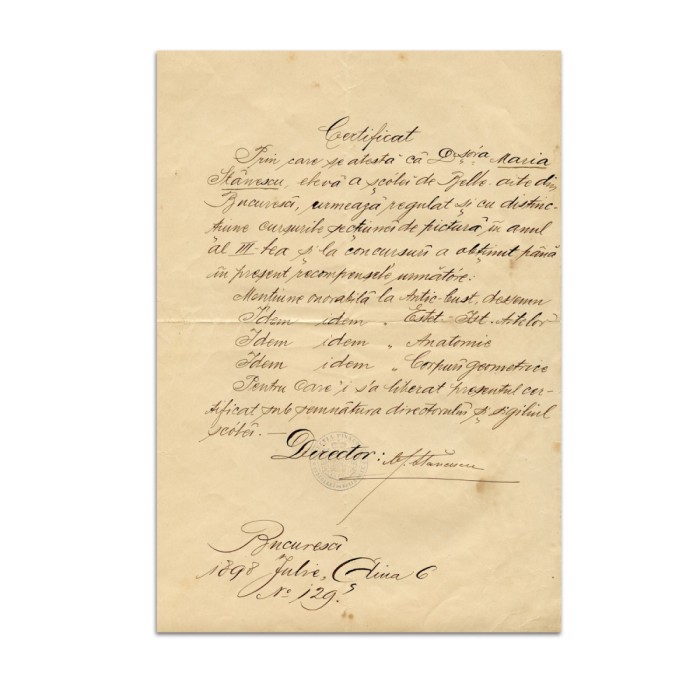 Certificat
Prin care se atestă că D-șóra Maria
Stănescu, elevă a școlei de Belle-arte din
Bucuresci, urmează regulat și cu distinc-
țiune cursurile secțiunei de pictură în anul
al III-lea și la concursuri a obținut până
în present recompensele următóre:
Mențiune onorabilă la Antic-bust, desemn
Idem idem „ Estet-Ist. Artelor
Idem idem „ Anatomie
Idem idem „ Corpuri geometrice
Pentru care i s'a liberat presentul cer-
tificat sub semnătura directorului și sigiliul
școlei. —
Director: Stăncescu
Bucuresci
1898 Julie, Diua 6
No 129.